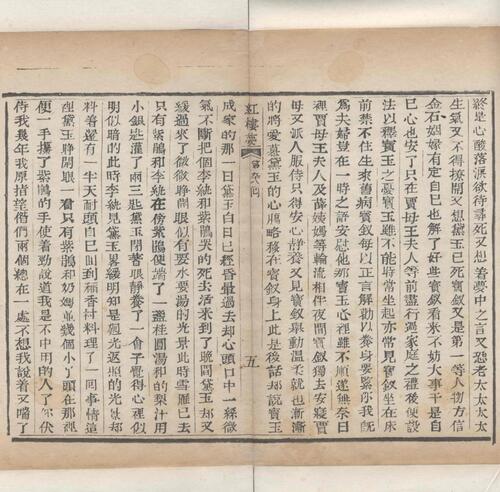 終是心酸落淚欲待尋死又想着夢中之言又恐老太太太太
生氣又不得撩開又想黛玉已死寶釵又是第一等人物方信
金石姻緣有定自己也解了好些寶釵看來不妨大事于是自
己心也安了只在賈母王夫人等前盡行過家庭之禮後便設
法以釋寶玉之憂寶玉雖不能時常坐起亦常見寶釵坐在床
前禁不住生來舊病寶釵每以正言解勸以養身要緊你我旣
爲夫婦豈在一時之語安慰他那寶玉心裡雖不順遂無奈日
裡賈母王夫人及薛姨媽等輪流相伴夜間寶釵獨去安寢賈
母又派人服侍只得安心靜養又見寶釵舉動溫柔就也漸漸
的將愛慕黛玉的心腸略移在寶釵身上此是後話却說寶玉
紅樓夢
五
成家的那一日黛玉白日已經昏暈過去却心頭口中一絲微
氣不斷把個李紈和紫鵑哭的死去活來到了晚間黛玉却又
緩過來了微微睜開眼似有要水要湯的光景此時雪雁已去
只有紫鵑和李紈在傍紫鵑便端了一盞桂圓湯和的梨汁用
小銀匙灌了兩三匙黛玉閉着眼靜養了一會子覺得心裡似
明似暗的此時李紈見黛玉畧緩明知是迴光返照的光景却
料着還有一半天耐頭自己回到稻香村料理了一回事情這
裡黛玉睜開眼一看只有紫鵑和奶媽並幾個小丫頭在那裡
便一手攥了紫鵑的手使着勁說道我是不中用的人了你伏
侍我幾年我原指望偺們兩個總在一處不想我說着又喘了